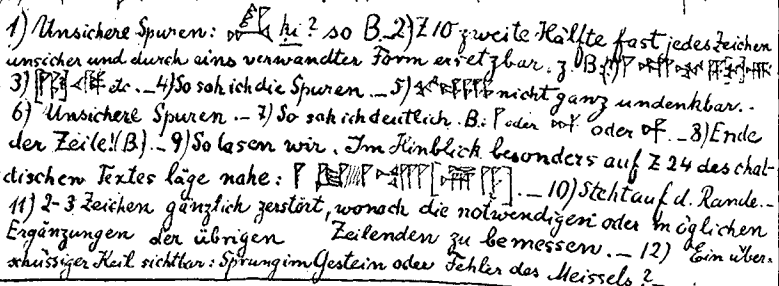 1) Unsichere Spuren: hi? so B. _2) Z 10 zweite Hälfte fast jedes Zeichen
unsicher und durch eins verwandter Form ersetzbar. z. B.
3) etc. _ 4) So sah ich die Spuren. _ 5) nicht ganz undenkbar. _
6) Unsichere Spuren. _ 7) So sah ich deutlich. B: oder oder _8) Ende
der Zeile! (B) _ 9) So lasen wir. Im Hinblick besonders auf Z 24 des chal-
dischen Textes läge nahe: . _ 10) Steht auf d. Rande. _
11) 2-3 Zeichen gänzlich zerstört, wonach die notwendigen oder möglichen
Ergänzungen der übrigen Zeilenden zu bemessen. _ 12) Ein über-
schüssiger Keil sichtbar: Sprung im Gestein oder Fehler des Meissels? _